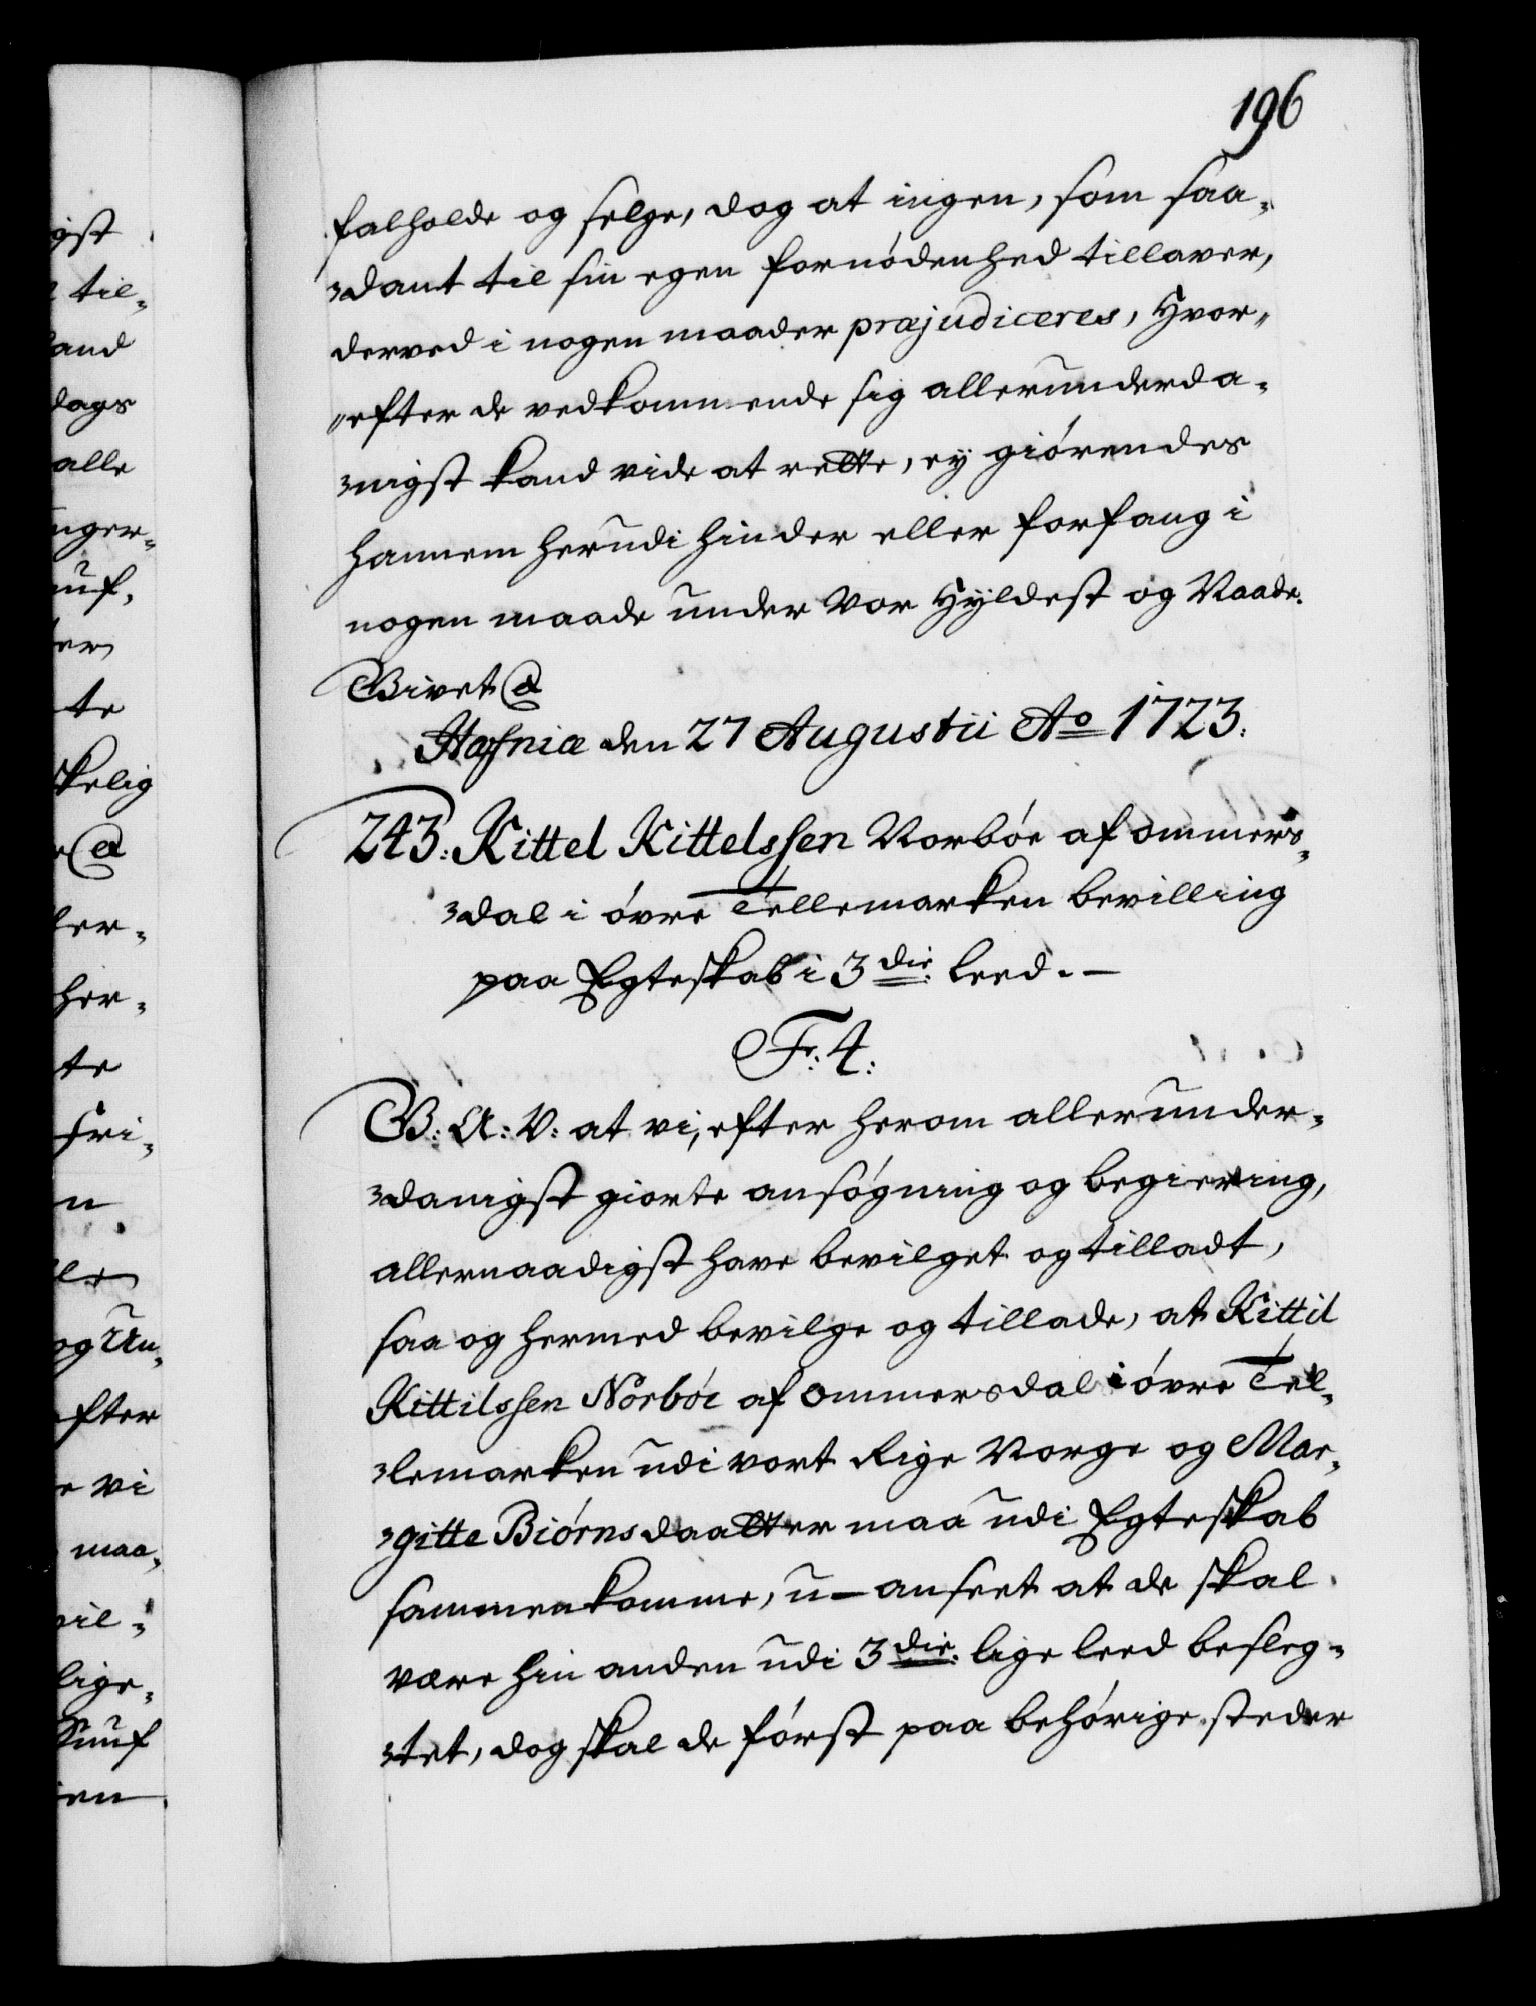 196
falholde og selge, dog at ingen, som saa-
-dant til sin egen fornödenhed tillaver,
derved i nogen maader præjudiceres, Hvor-
-efter de vedkommende sig allerunderda-
-nigst kand vide at rette, ey giörendes
hannem herudi hinder eller forfang i
nogen maade under Vor Hyldest og Naade.
Givet &
Hafniæ den 27 Augustii Ao 1723.
243: Kittel Kittelssen Norböe af ommers-
-dal i övre Tellemarken bevilling
paa Egteskab i 3die leed. —
Fr: 4:
G: A: V: at vi, efter herom allerunder-
-danigst giorte ansögning og begiering,
allernaadigst have bevilget og tilladt,
saa og hermed bevilge og tillade, at Kittil
Kittilssen Norböe af ommersdal i övre Tel-
-lemarken udi vort Rige Norge og Mar-
-gitte Biörnsdaatter maa udi Egteskab
sammenkomme, u-anseet at de skal
være hin anden udi 3die lige leed besleg-
-tet, dog skal de först paa behörige steder
gst
til-
and
dags
alle
nger-
er
te
skelig
&
er-
her-
te
Fri-
n
le
og Un-
efter
e vi
maa-
vil-
lige-
en